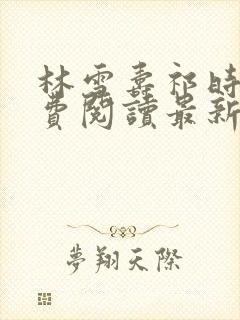 林雪熹祁時
費閱讀最新
夢翔天際